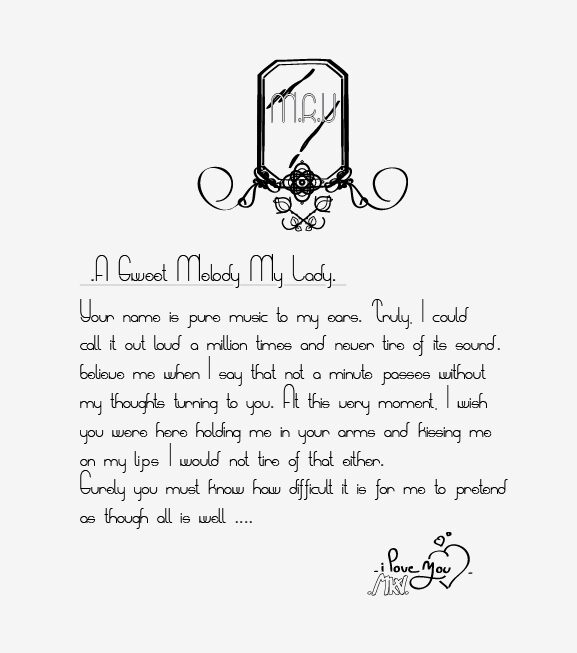 M.R.V
.A Sweet Melody My Lady.
Your name is pure music to my ears. Truly, I could
call it out loud a million times and never tire of its sound.
believe me when I say that not a minute passes without
my thoughts turning to you. At this very moment, I wish
you were here holding me in your arms and kissing me
on my lips I would not tire of that either.
Surely you must know how difficult it is for me to pretend
as though all is well ....
-i love you-
.MRV.